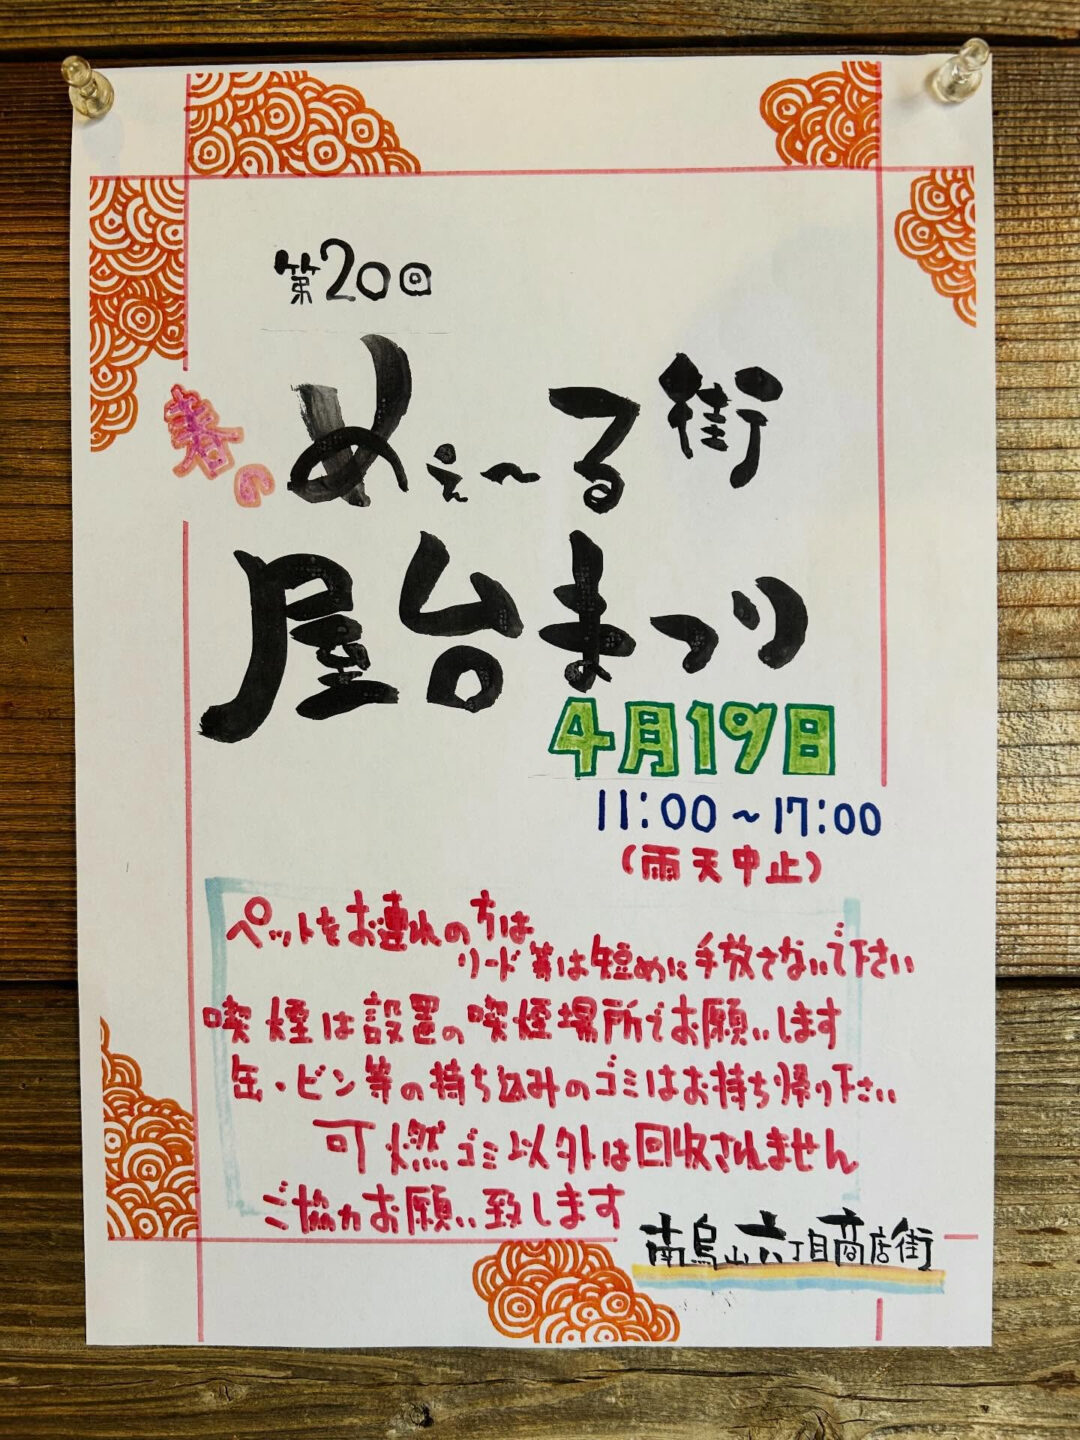 第20回
春の
めぇ〜る街
屋台まつり
4月19日
11:00～17:00
(雨天中止)
ペットをお連れの方は
リード等は短めに手放さないで下さい
喫煙は設置の喫煙場所でお願いします
缶・ビン等の持ち込みのゴミはお持ち帰り下さい
可燃ゴミ以外は回収されません
ご協力お願い致します
南烏山六丁目商店街